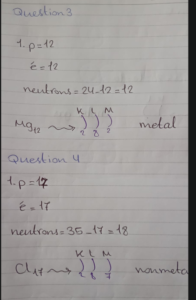 Question 3
1. p=12
ē = 12
neutrons = 24-12 = 12
K L M
Mg12 ⟿ ) ) ) metal
2 8 2
Question 4
1. p=17
ē = 17
neutrons = 35-17 = 18
K L M
Cl17 ⟿ ) ) ) nonmeta
2 8 7